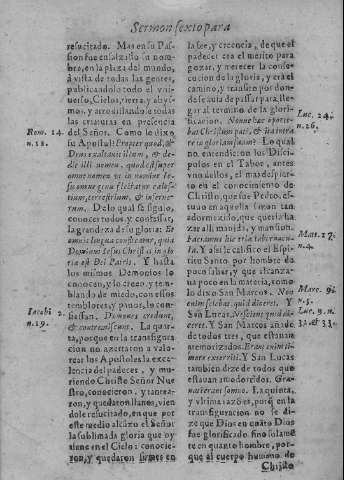 Sermon sexto para
resucitado. Mas en su Pas-
sion fue ensalzado su nom-
bre, en la plaza del mundo,
à vista de todas las gentes,
publicandolo todo el vni-
uerso, Cielos, tierra, y abys-
mos, y arrodillandose todas
las criaturas en presencia
del Señor. Como lo dixo
su Apostol: Propter quod, &
Deus exaltauit illum, & de-
dit illi nomen, quod est super
omne nomen vt in nomine Ie-
su omne genu flectatur cæles-
tium, terrestrium, & infernc-
rum. De lo qual se siguio,
conocer todos y confessar,
la grandeza de su gloria: Et
omnis lingua confiteatur, quia
Dominus Iesus Christus in glo-
ria est Dei Patris. Y hasta
los mismos Demonios lo
conocen, y lo creen, y tem-
blando de miedo, con essos
temblores, y pauor, lo con-
fiessan. Dæmones credunt,
& contremiscunt. La quar-
ta, porque en la transfigura
cion no acertaron a valo-
rear los Apostoles la exce-
lencia del padecer, y mu-
riendo Christo Señor Nue
stro, conocieron, y
y quedaron llanos, vien
dole resucitado, en que por
este medio alcāzo el Señor
la sublimada gloria que oy
tiene en el Cielo: conocie-
ron, y quedaron firmes en
Rom. 14.
n. 11.
Iacobi 2.
n. 19.
la fee, y creencia, de que el
padecer era el merito para
gozar, y merecer la conse-
cucion de la gloria, y era el
camino, y transito por don-
de auia de passar para, lle-
gar al termino de la glori-
ficacion. Nonne hæc oporte-
bat Christum pati, & ita intra-
re in gloriam suam? Lo qual
no entendieron los Disci-
pulos en el Tabor, antes
vno dellos, el mas despier-
to en el conocimiento de
Christo, que fue Pedro, es-
tuuo en aquella sazon tan
adormezido, que queria ha-
zer alli manida, y mansion.
Faciamus hic tria tabernacu-
la. Y assi le calificò el Espi-
ritu Santo por hombre de
poco saber, y que alcanza-
ua poco en la materia, como
lo dixo San Marcos. Non
enim sciebat quid diceret. Y
San Lucas. Nesciens quid di-
ceret. Y San Marcos añade
de todos tres, que estauan
amedrentados. Erant enim ti-
more exterriti. Y San Lucas
tambien dize de todos que
estauan amodorridos. Gra-
uati erant somno. La quinta,
y vltima razō es, porque en
la transfiguracion no se di-
ze que Dios en cuāto Dios
fue glorificado sino solamē
te en quanto hombre, por-
que al cuerpo humano de
Luc. 24.
n. 26.
Mat. 17.
n. 4.
Marc. 9.
n. 5.
Luc. 9. n.
32. & 33.
Christo